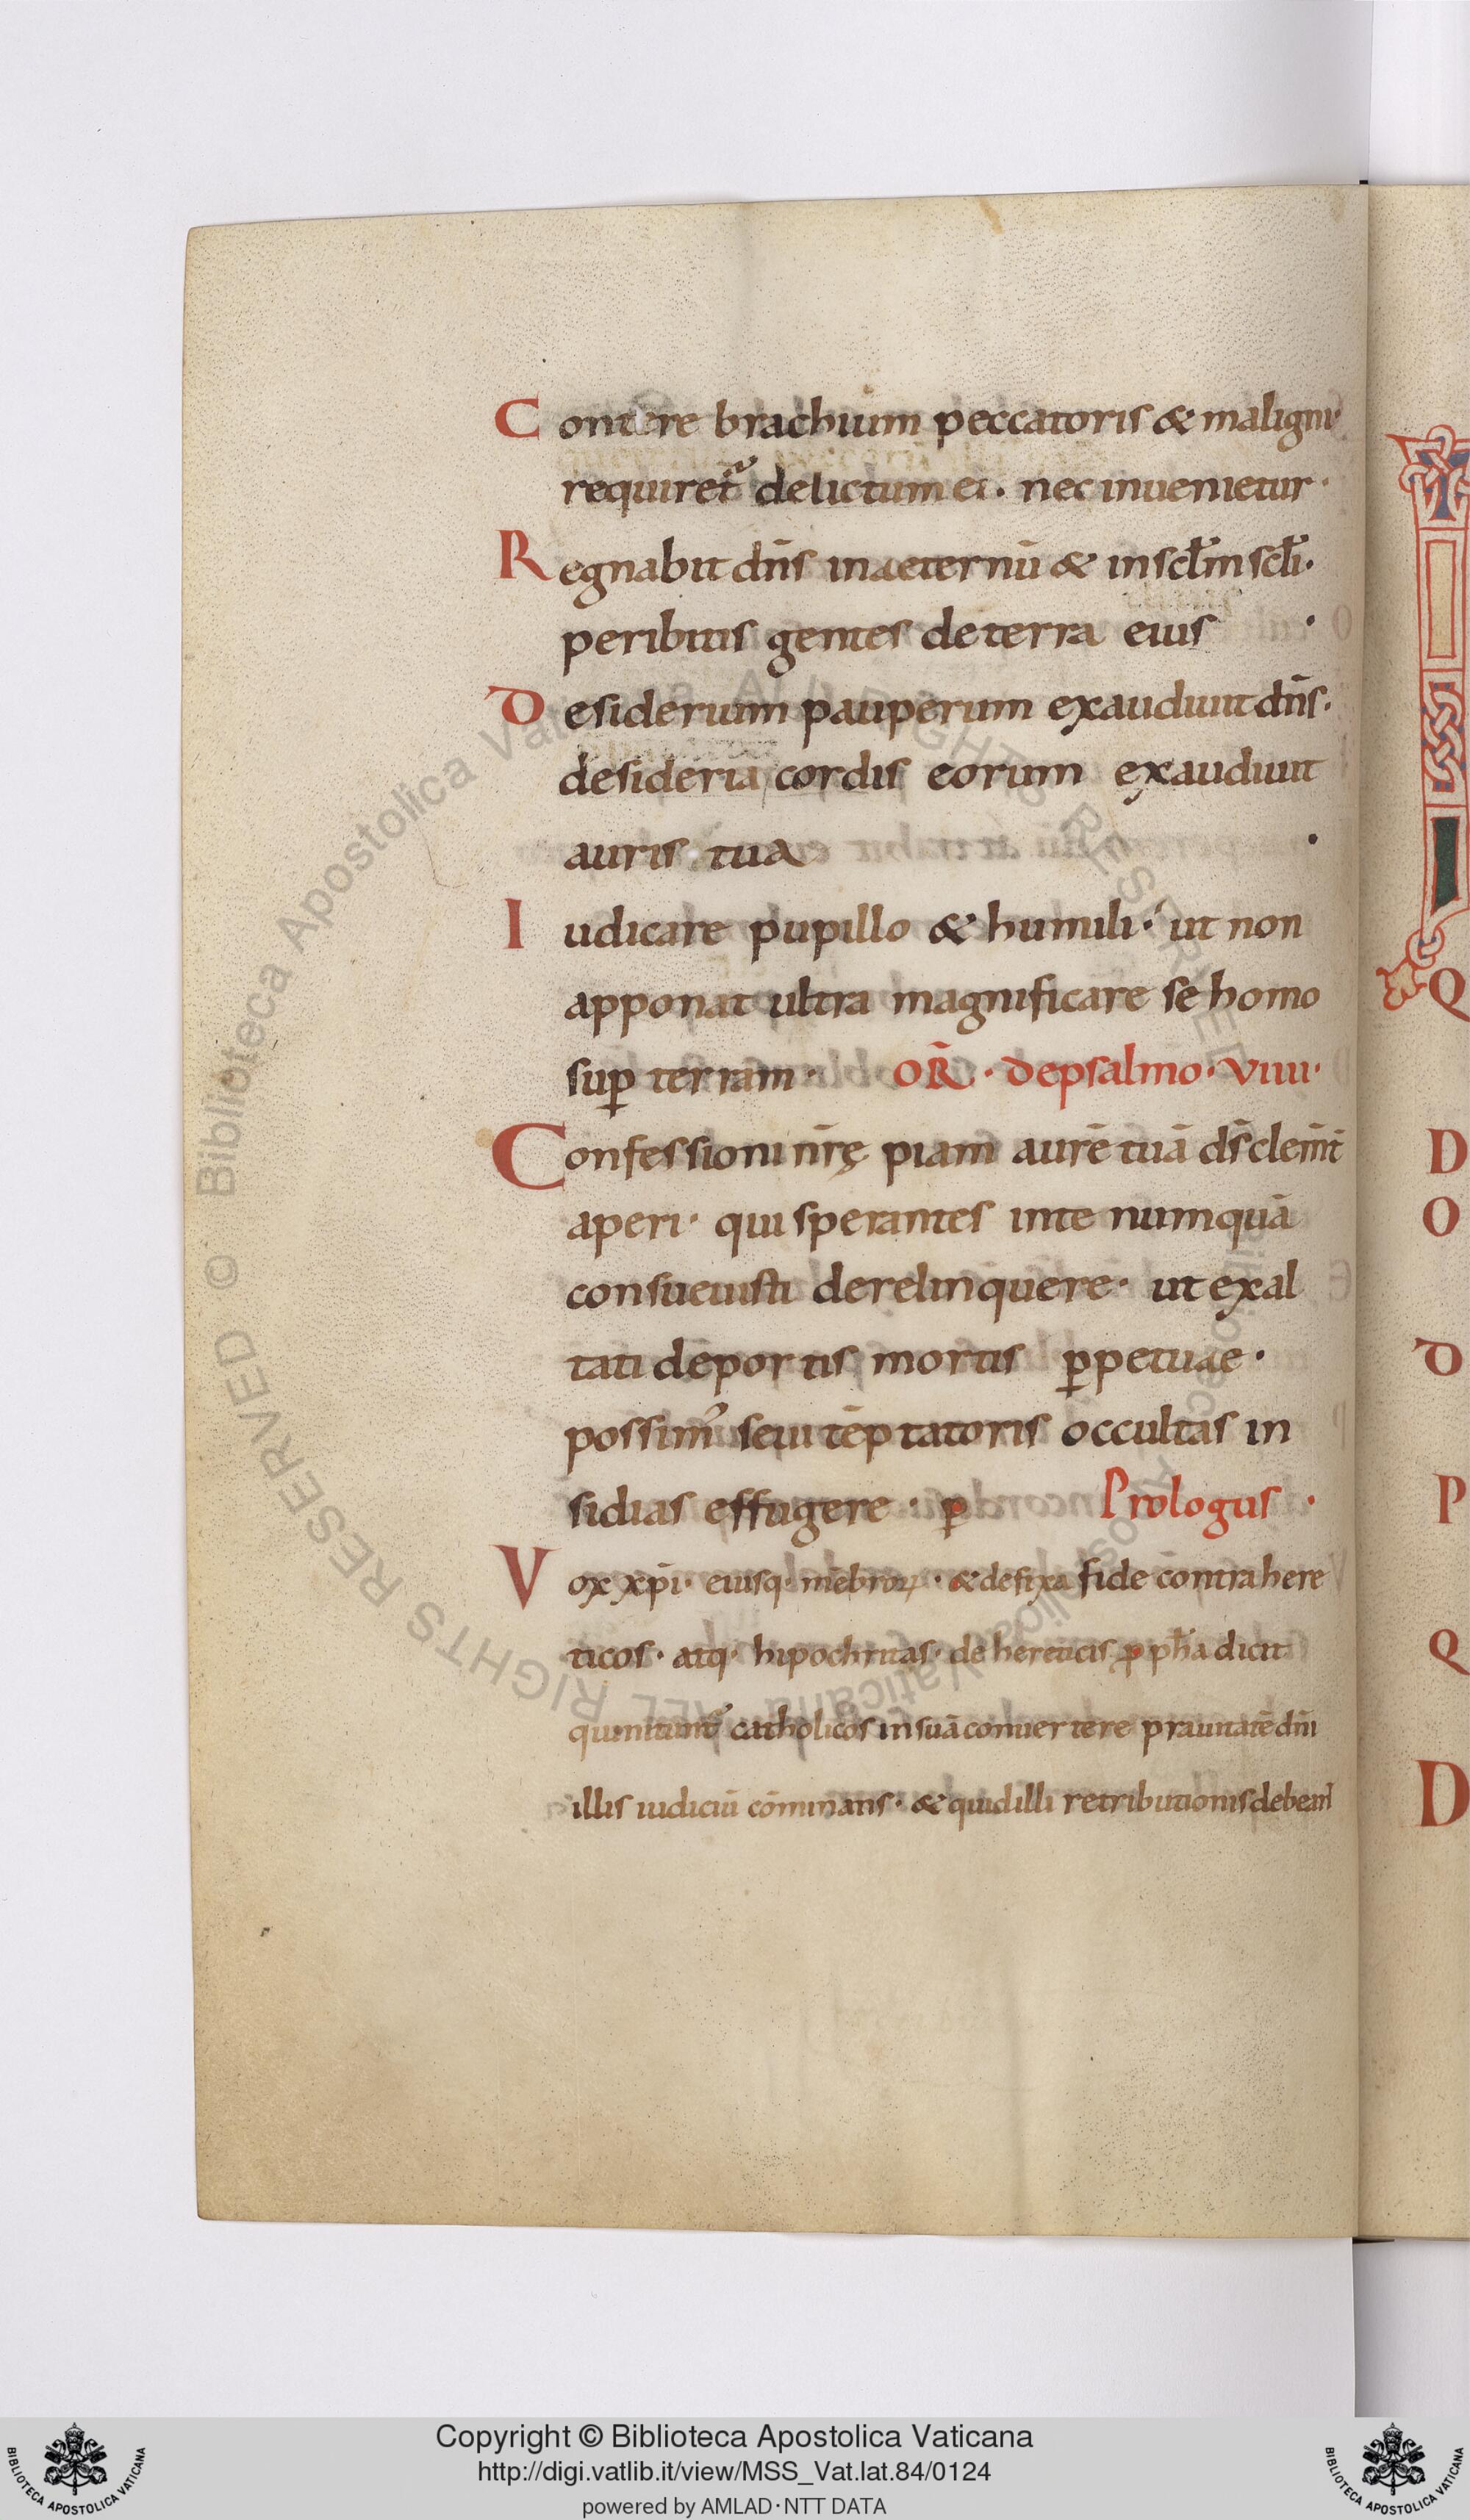 Contere brachium peccatoris & maligni·
requiret᷑ delictum ei· nec inuenietur·
Regnabit dn̄s inaeternū & insct̄m sct̄i·
peribitis gentes deterra eius ·
Desiderium pauperum exaudiuit dn̄s·
desideria cordis eorum exaudiuit
auris tua ·
Iudicare pupillo & humili· ut non
apponat ultra magnificare se homo
suꝑ terram· OR̄· depsalmo· VIIII·
Confessioni nr̄ę piam aurē tuā dš clem̄t
aperi· qui sperantes inte numquā
consueuisti derelinquere· ut exal
tati deportis mortis ꝑpetuae·
possim᾽ seui tēptatoris occultas in
sidias effugere· ꝑ Prologus·
Vox xp̄i· eiusq· mēbroꝝ· & defixa fide contrahere
ticos· atq· hipochritas· de hereticis ꝓph̄a dicit
quinitunt᷑ catholicos insuā conuertere prauitatē dn̄i
illis iudiciū cōminans· & quidilli retributionis debeant
Q
D
O
D
P
Q
D
Copyright © Biblioteca Apostolica Vaticana
http://digi.vatlib.it/view/MSS_Vat.lat.84/0124
powered by AMLAD·NTT DATA
BIBLIOTECA APOSTOLICA VATICANA
BIBLIOTECA APOSTOLICA VATICANA